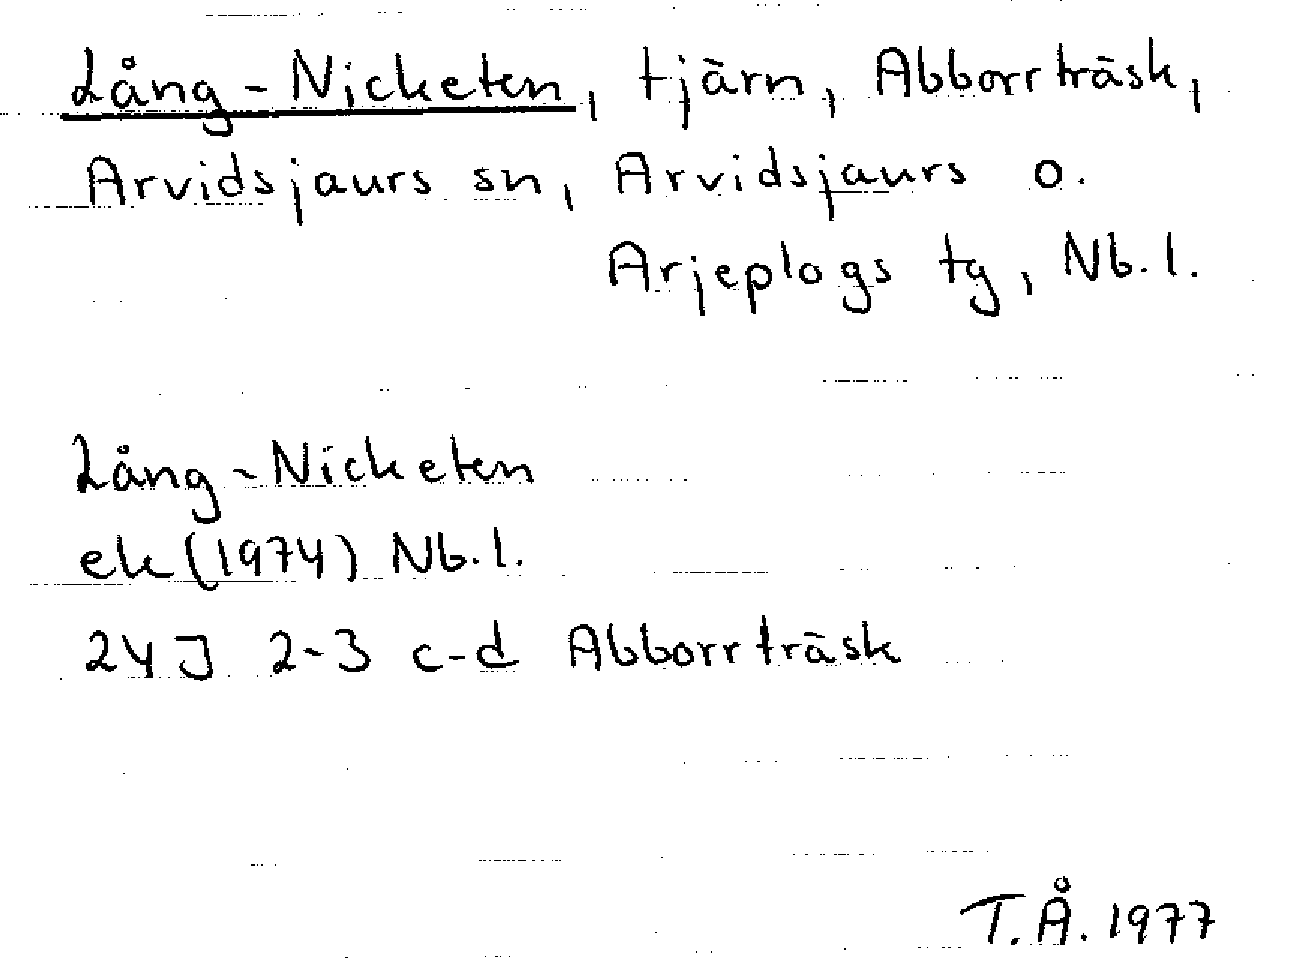 Lång-Nicketen, tjärn, Abborrträsk,
Arvidsjaurs sn, Arvidsjaurs o.
Arjeplogs tg, Nb.l.
Lång-Nicketen
ek (1974) Nb.l.
24J 2-3 c-d Abborrträsk
T.Å. 1977